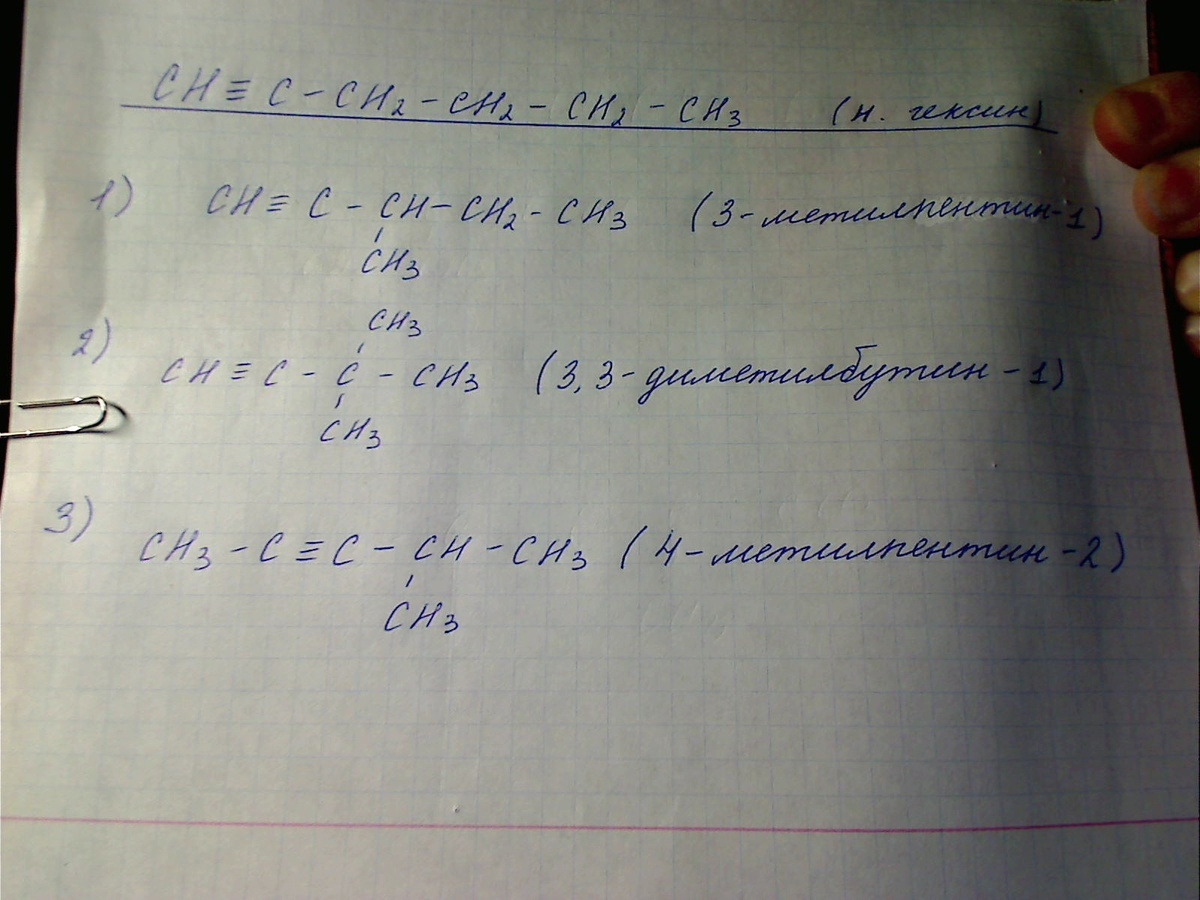 CH≡C-CH2-CH2-CH2-CH3 (н. гексин)
1) CH≡C-CH-CH2-CH3 (3-метилпентин-1)
CH3
CH3
2) CH≡C-C-CH3 (3,3-диметилбутин-1)
CH3
3) CH3-C≡C-CH-CH3 (4-метилпентин-2)
CH3